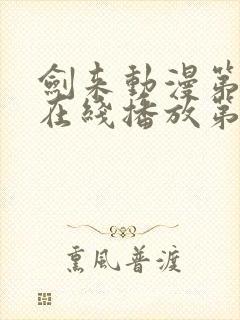 劍来動漫第
在綫播放第
熏風普渡